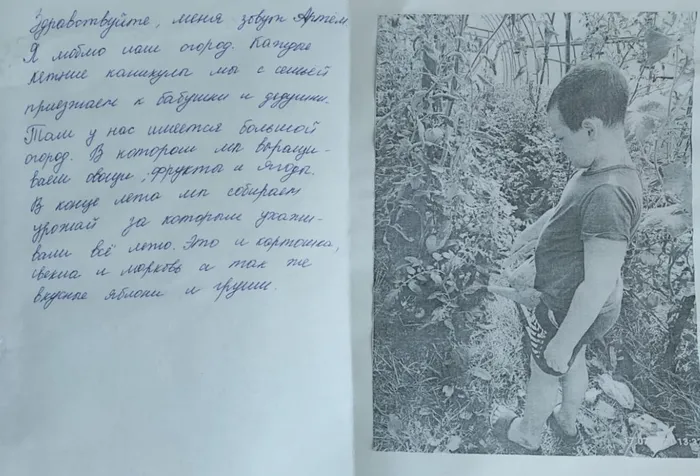 Здравствуйте, меня зовут Артём
Я люблю наш огород. Каждые
летние каникулы мы с семьей
приезжаем к бабушки и дедушки.
Там у нас имеется большой
огород. В котором мы выращи-
ваем овощи, фрукты и ягоды.
В конце лета мы собираем
урожай за которым ухажи-
вали всё лето. Это и картошка,
свекла и морковь а так же
вкусные яблоки и груши.